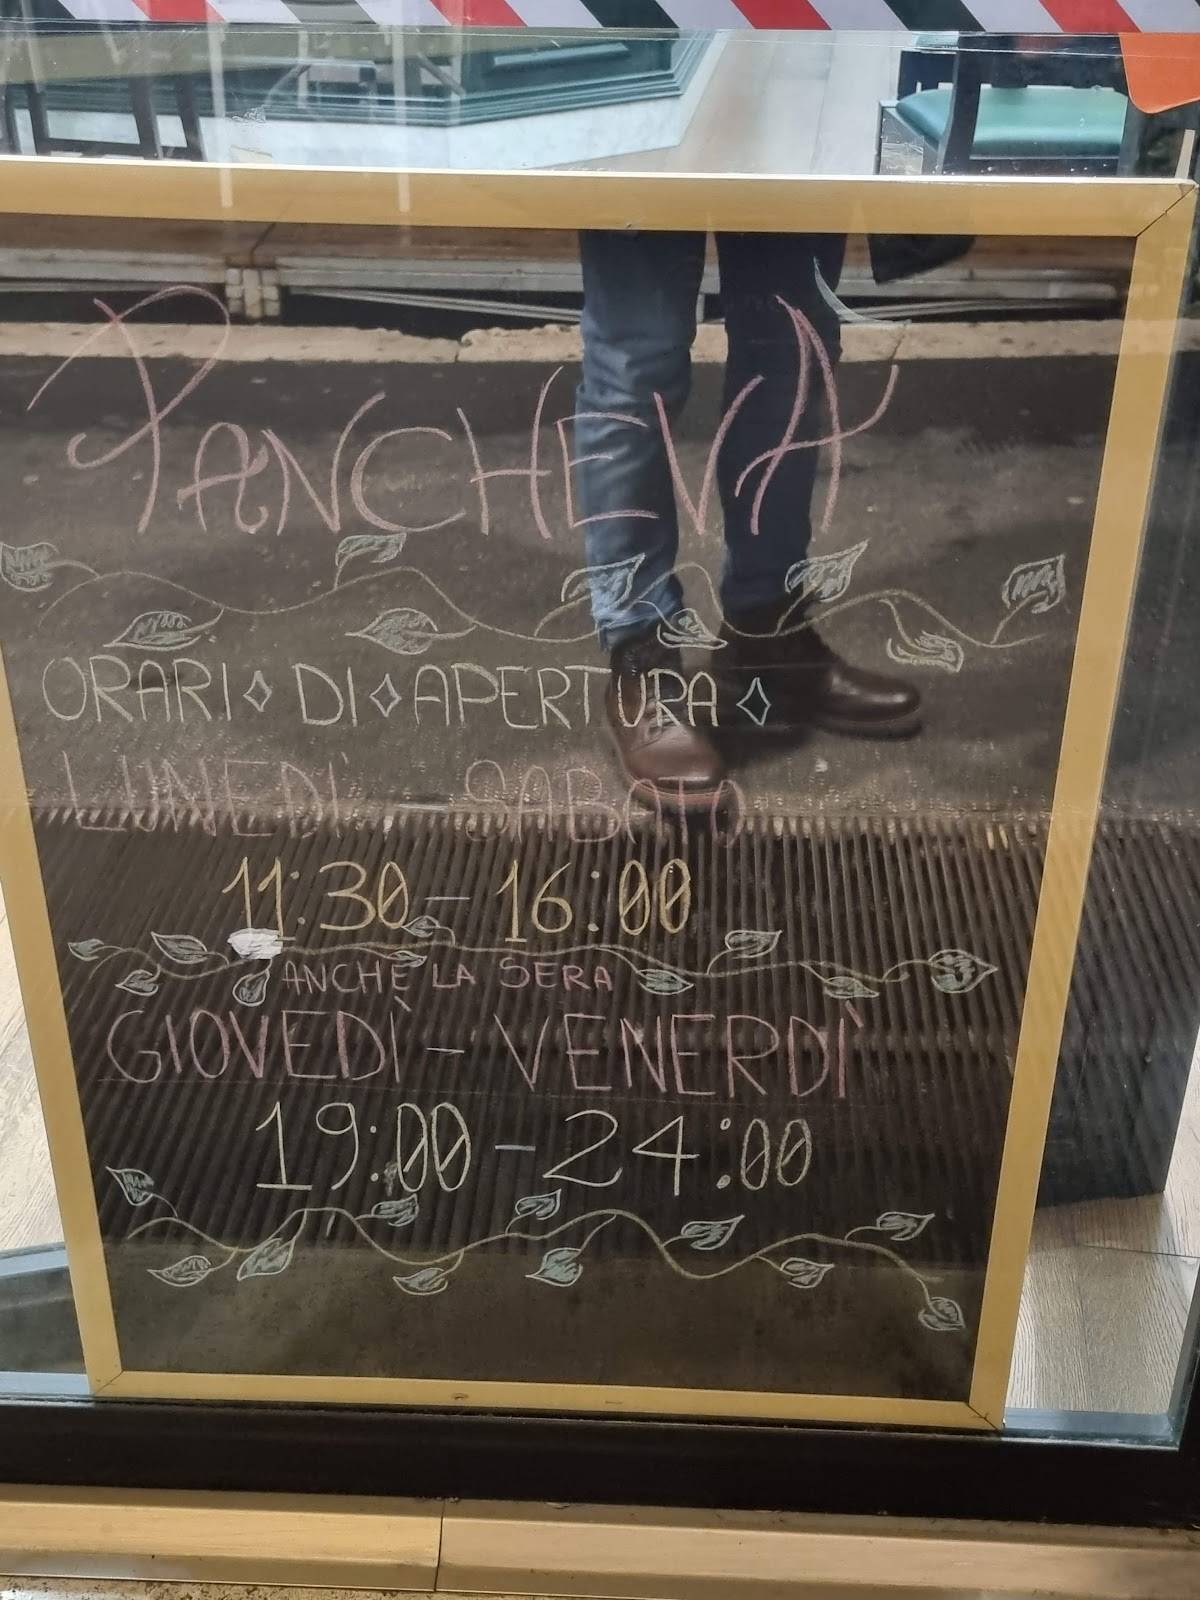 PANCHEVA
ORARI ◇ DI ◇ APERTURA ◇
LUNEDI' - SABATO
11:30 - 16:00
ANCHE LA SERA
GIOVEDÌ - VENERDÌ
19:00 - 24:00